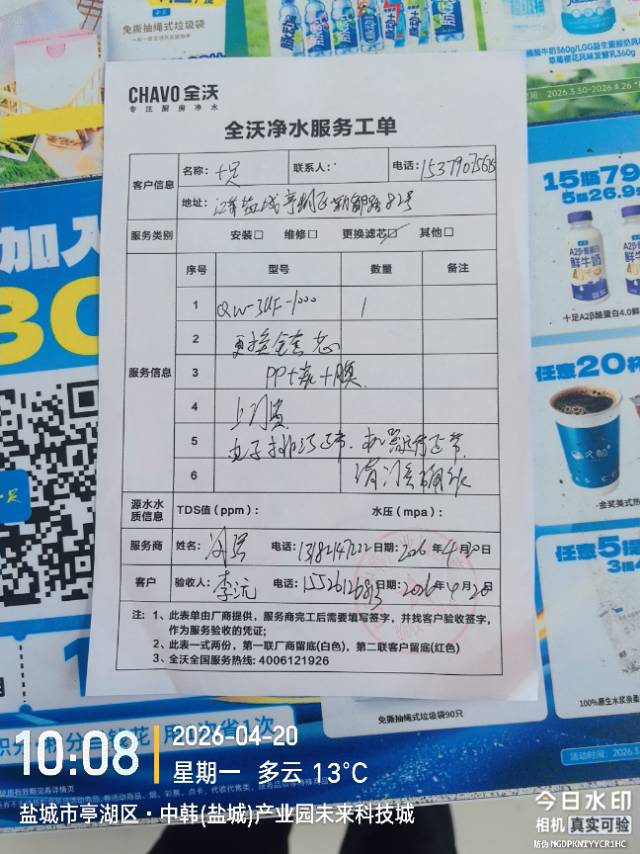 免撕抽绳式垃圾袋
酸牛奶360g/LGG益生菌酸奶风味
草莓樱花风味发酵乳360g
2026.3.30-2026.4.26
CHAVO全沃
专注厨房净水
全沃净水服务工单
客户信息
名称：十足
联系人：
电话：
地址：江苏盐城亭湖区
82号
服务类别
安装□ 维修□ 更换滤芯☑ 其他□
服务信息
序号 型号 数量 备注
1 QW-3UF-1000 1
2 更换全套芯
3 PP+炭+膜
4 上门费
5 电子排污正常. 机器运行正常
6
源水水质信息
TDS值（ppm）： 水压（mpa）：
服务商
姓名： 电话：13182147222 日期：2026年4月20日
客户
验收人：李沅 电话：15526126813 日期：2026年4月20日
注：1、此表单由厂商提供，服务商完工后需要填写签字，并找客户验收签字，
作为服务验收的凭证；
2、此表一式两份，第一联厂商留底(白色)，第二联客户留底(红色)
3、全沃全国服务热线：4006121926
加入
15瓶79
5瓶26.9
A2β酪蛋白
鲜牛奶
十足A2β酪蛋白4.0鲜
任意20杯
金奖美式热
任意5提
100%原生木浆亲柔
免撕抽绳式垃圾袋90只
活动时间：2026.3
10:08
2026-04-20
星期一 多云 13°C
盐城市亭湖区·中韩(盐城)产业园未来科技城
今日水印
相机 真实可验
防伪 MGDPKNTYYCR1HC